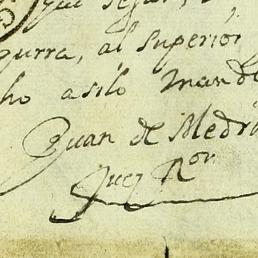 que
gurra, al Superior
ho asilo mand
Juan de Medr
Juez Ror